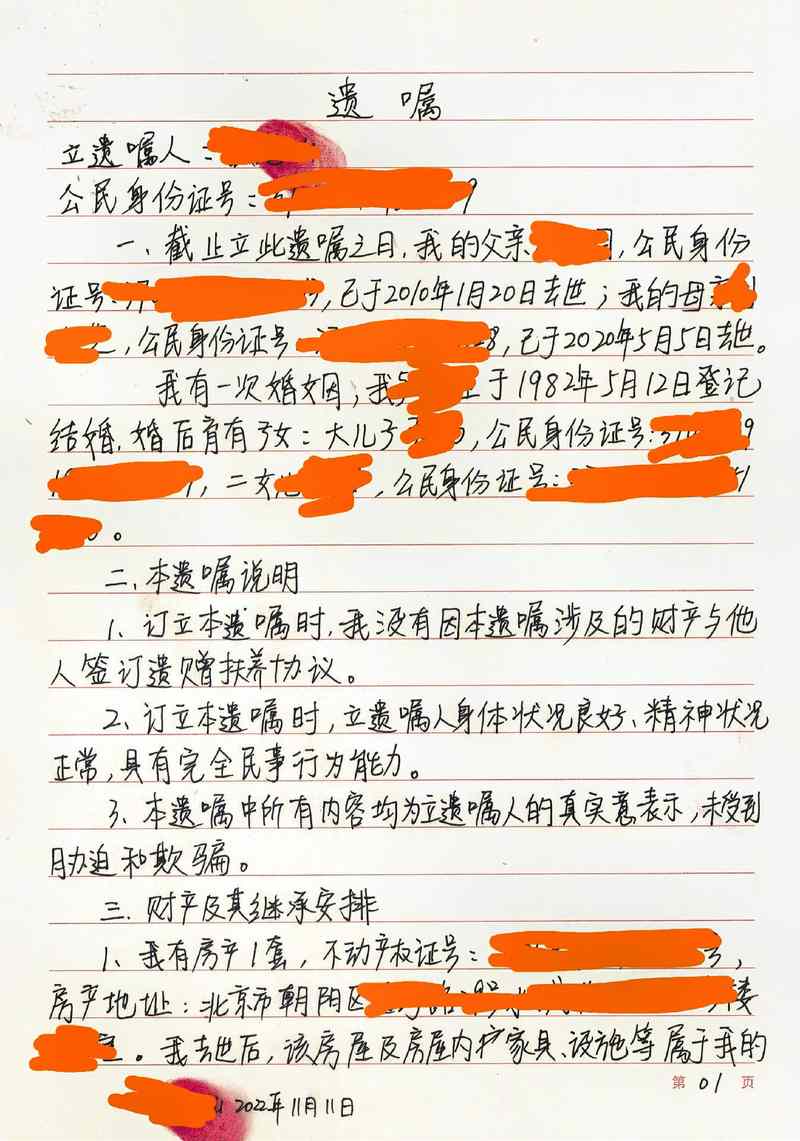 遗 嘱
立遗嘱人：
公民身份证号： 9
一、截止立此遗嘱之日，我的父亲 ，公民身份
证号 ，已于2010年1月20日去世；我的母亲
，公民身份证号： 8，已于2020年5月5日去世。
我有一次婚姻；我 于1982年5月12日登记
结婚，婚后育有子女：大儿子 ，公民身份证号： 9
，二女儿 ，公民身份证号：
。
二、本遗嘱说明
1、订立本遗嘱时，我没有因本遗嘱涉及的财产与他
人签订遗赠扶养协议。
2、订立本遗嘱时，立遗嘱人身体状况良好、精神状况
正常，具有完全民事行为能力。
3、本遗嘱中所有内容均为立遗嘱人的真实意表示，未受到
胁迫和欺骗。
三、财产及其继承安排
1、我有房产1套，不动产权证号： ，
房产地址：北京市朝阳区 楼
。我去世后，该房屋及房屋内护家具、设施等属于我的
第 01 页
2022年11月11日